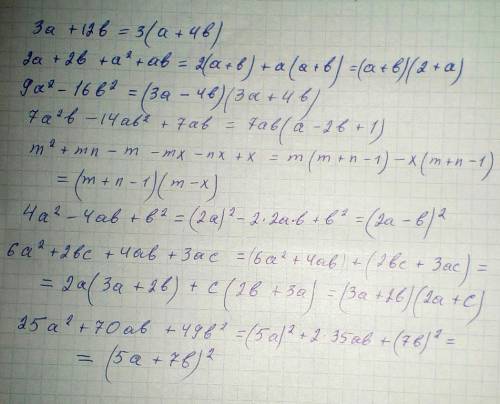 3a + 12в = 3(a + 4в)
2a + 2в + a² + aв = 2(a+в) + a(a+в) = (a+в)(2+a)
9a² - 16в² = (3a - 4в)(3a + 4в)
7a²в - 14aв² + 7aв = 7aв(a - 2в + 1)
m² + mn - m - mx - nx + x = m(m+n-1) - x(m+n-1)
= (m+n-1)(m-x)
4a² - 4aв + в² = (2a)² - 2·2a·в + в² = (2a - в)²
6a² + 2вc + 4aв + 3ac = (6a² + 4aв) + (2вc + 3ac) =
= 2a(3a + 2в) + c(2в + 3a) = (3a + 2в)(2a + c)
25a² + 70aв + 49в² = (5a)² + 2·35aв + (7в)² =
= (5a + 7в)²